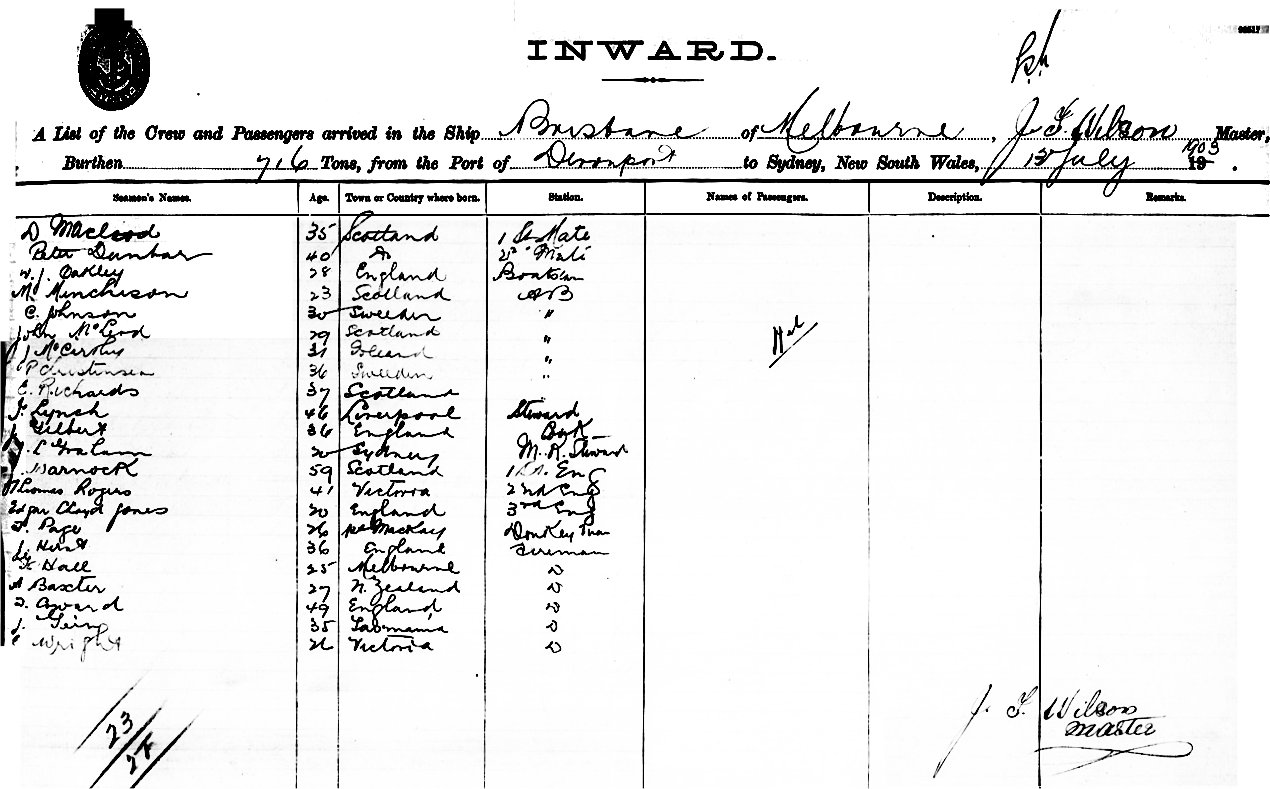 INWARD.
A List of the Crew and Passengers arrived in the Ship Brisbane of Melbourne, J. F. Wilson Master,
Burthen 716 Tons, from the Port of Devonport to Sydney, New South Wales, 12 July 1903.
Seamen's Names. Age. Town or Country where born. Station. Names of Passengers. Description. Remarks.
D Macleod 35 Scotland 1st Mate
Peter Dunbar 40 Do 2nd Mate
W. J. Oakley 28 England Boatswn
M. Minchison 23 Scotland AB
C. Johnson 30 Sweeden "
John McLeod 29 Scotland "
J McCarthy 31 "
P Christinsen 36 Sweeden "
E. Richards 37 Scotland
J. Lynch 46 Liverpool Steward
J Gilbert 36 England Cook
L Graham 20 Sydney M. R. Steward
J Warnock 59 Scotland 1st Eng
Thomas Rogers 41 Victoria 2nd Eng
Edgar Lloyd Jones 20 England 3rd Eng
F. Page 26 Mackay Donkeyman
J. Hunt 36 England Fireman
Hall 25 Melbourne D
A Baxter 27 N. Zealand D
49 England D
J. 35 Tasmania D
C Wright 21 Victoria D
Nil
23
24
J. F. Wilson
Master